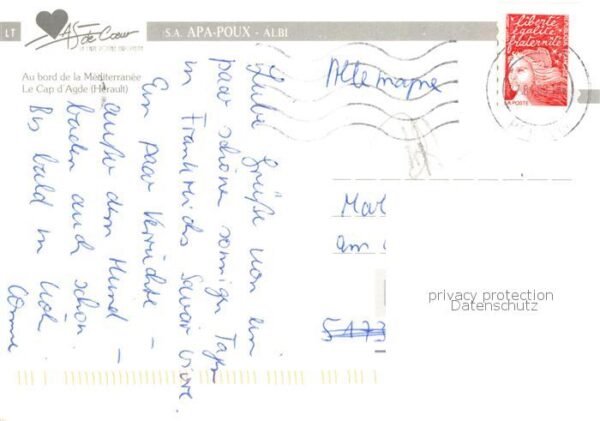 LT
AS de Cœur
S.A. APA-POUX - ALBI
Au bord de la Méditerranée
Le Cap d'Agde (Hérault)
Liberté
égalité
fraternité
LA POSTE
Allemagne
Liebe Grüße von ein
paar schöne sonnige Tage
in Frankreichs Savoir vivre.
Ein paar Verrückte –
außer dem Hund –
baden auch schon.
Bis bald in
Mar
am
5177
privacy protection
Datenschutz